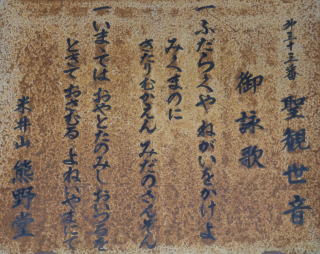 第三十三番
聖観世音
御詠歌
一ふだらくや ねがいをかけよ
みくまのに
きたりむかえん みだのさんぞん
一いままでは おやとたのみしおいづるを
ときておさむる よねいやまにて
米井山 熊野堂